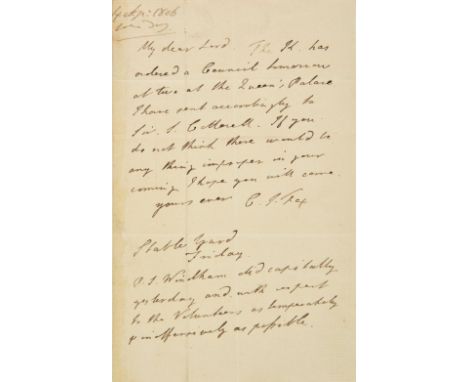 Apr. 1806
My dear Lord. The K. has
ordered a Council tomorrow
at two at the Queen's Palace
I have sent accordingly to
Sir. S. Cotterell. If you
do not think there would be
any thing improper in your
coming I hope you will come.
yours ever C. J. Fox
Stable Yard
Friday.
P.S. Windham did capitally
yesterday and with respect
to the Volunteers as temperately
& inoffensively as possible.